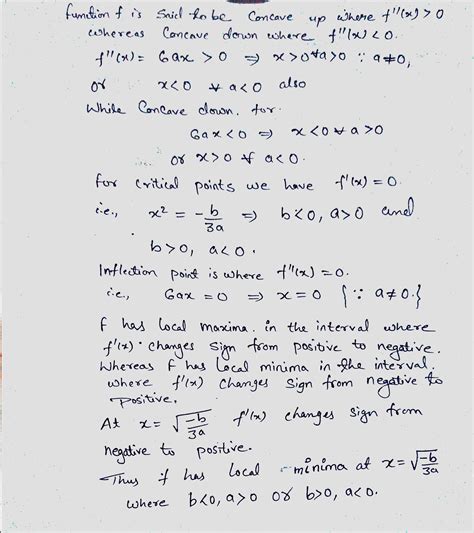 function f is said to be Concave up where f''(x) > 0
whereas Concave down where f''(x) < 0.
f''(x) = 6ax > 0 ⇒ x>0 ∀ a>0 ∵ a≠0,
or x<0 ∀ a<0 also
While Concave down, for.
6ax<0 ⇒ x<0 ∀ a>0
or x>0 ∀ a<0.
for critical points we have f'(x) = 0.
i.e., x² = -b/3a ⇒ b<0, a>0 and
b>0, a<0.
Inflection point is where f''(x) = 0.
i.e., 6ax = 0 ⇒ x = 0 {∵ a≠0.}
f has local maxima. in the interval where
f'(x). changes sign from positive to negative.
Whereas f has local minima in the interval.
where f'(x) changes sign from negative to
positive.
At x = √(-b/3a) f'(x) changes sign from
negative to positive.
Thus f has local minima at x = √(-b/3a)
where b<0, a>0 or b>0, a<0.